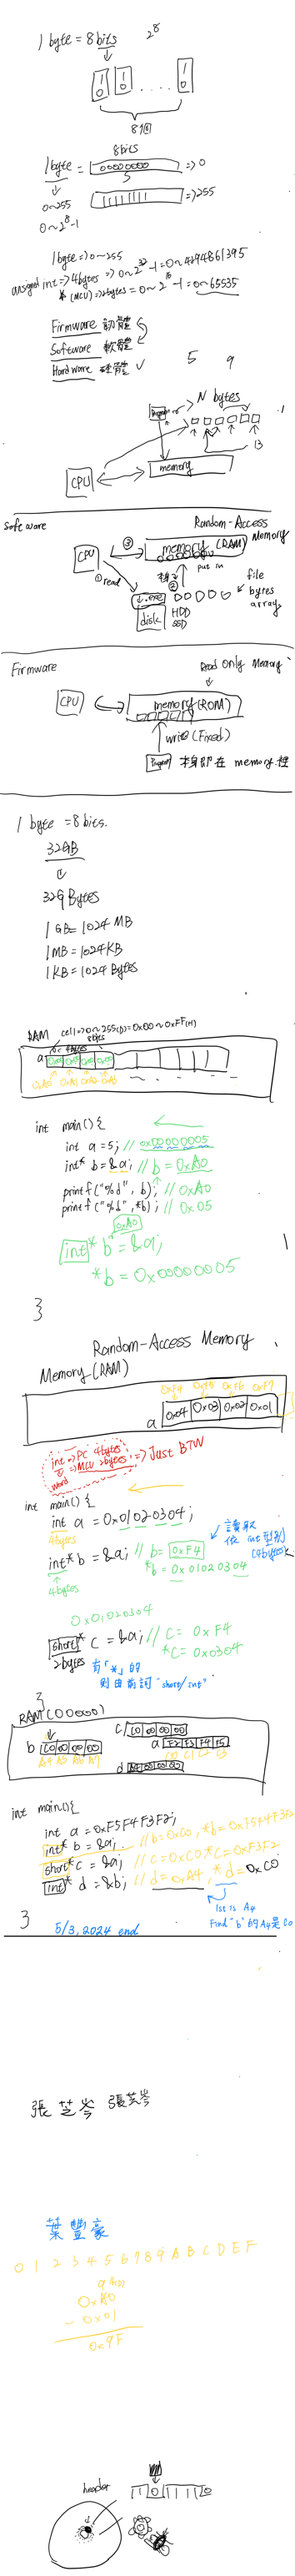 1 byte = 8bits 2^8
1 1 .... 1
0 0 0
8個
8bits
1byte = 00000000 => 0
0~255 11111111 => 255
0~2^8-1
1byte => 0~255
unsigned int => 4bytes => 0~2^32-1 = 0~4294861395
(MCU) => 2bytes = 0~2^16-1 = 0~65535
Firmware 韌體
Software 軟體
Hardware 硬體
5 9
N bytes
Program
13
CPU memory
Software Random-Access Memory
CPU ③ memory (RAM)
① read put in
② file
.exe bytes
disk HDD array
SSD
Firmware Read Only Memory
CPU memory (ROM)
write (Fixed)
Program 本身即在 memory 裡
1 byte = 8bits.
32GB
32G Bytes
1GB = 1024 MB
1MB = 1024KB
1KB = 1024 Bytes
RAM cell => 0~255(D) = 0x00~0xFF(H)
4bytes 8bits
a
0xA0 0xA1 0xA2 0xA3
int main() {
int a = 5; // 0x00000005
int* b = &a; // b = 0xA0
printf("%d", b); // 0xA0
printf("%d", *b); // 0x05
0xA0
int* b = &a;
*b = 0x00000005
}
Random-Access Memory
Memory (RAM)
0xF4 0xF5 0xF6 0xF7
a 0x04 0x03 0x02 0x01
int => PC 4bytes
=> MCU 2bytes => Just BTW
word
int main() {
int a = 0x01020304;
4bytes
int* b = &a; // b = 0xF4
*b = 0x01020304
4bytes
讀取
依 int 型別
(4bytes)
0x01020304
short* c = &a; // c = 0xF4
*c = 0x0304
2bytes 有「*」的
則由前詞 "short/int"
}
RAM (00000)
c C0 00 00 00
b C0 00 00 00 a F2 F3 F4 F5
A4 A5 A6 A7 C0 C1 C2 C3
d A4 00 00 00
int main() {
int a = 0xF5F4F3F2;
int* b = &a; // b=0xC0, *b=0xF5F4F3F2
short* c = &a; // c=0xC0, *c=0xF3F2
int* d = &b; // d=0xA4, *d=0xC0
1st is A4
Find "b" 的 A4 是 C0
}
5/3, 2024 end
張芝岑 張芝岑
葉豐豪
0 1 2 3 4 5 6 7 8 9 A B C D E F
0xA0
- 0x01
0x9F
header
0